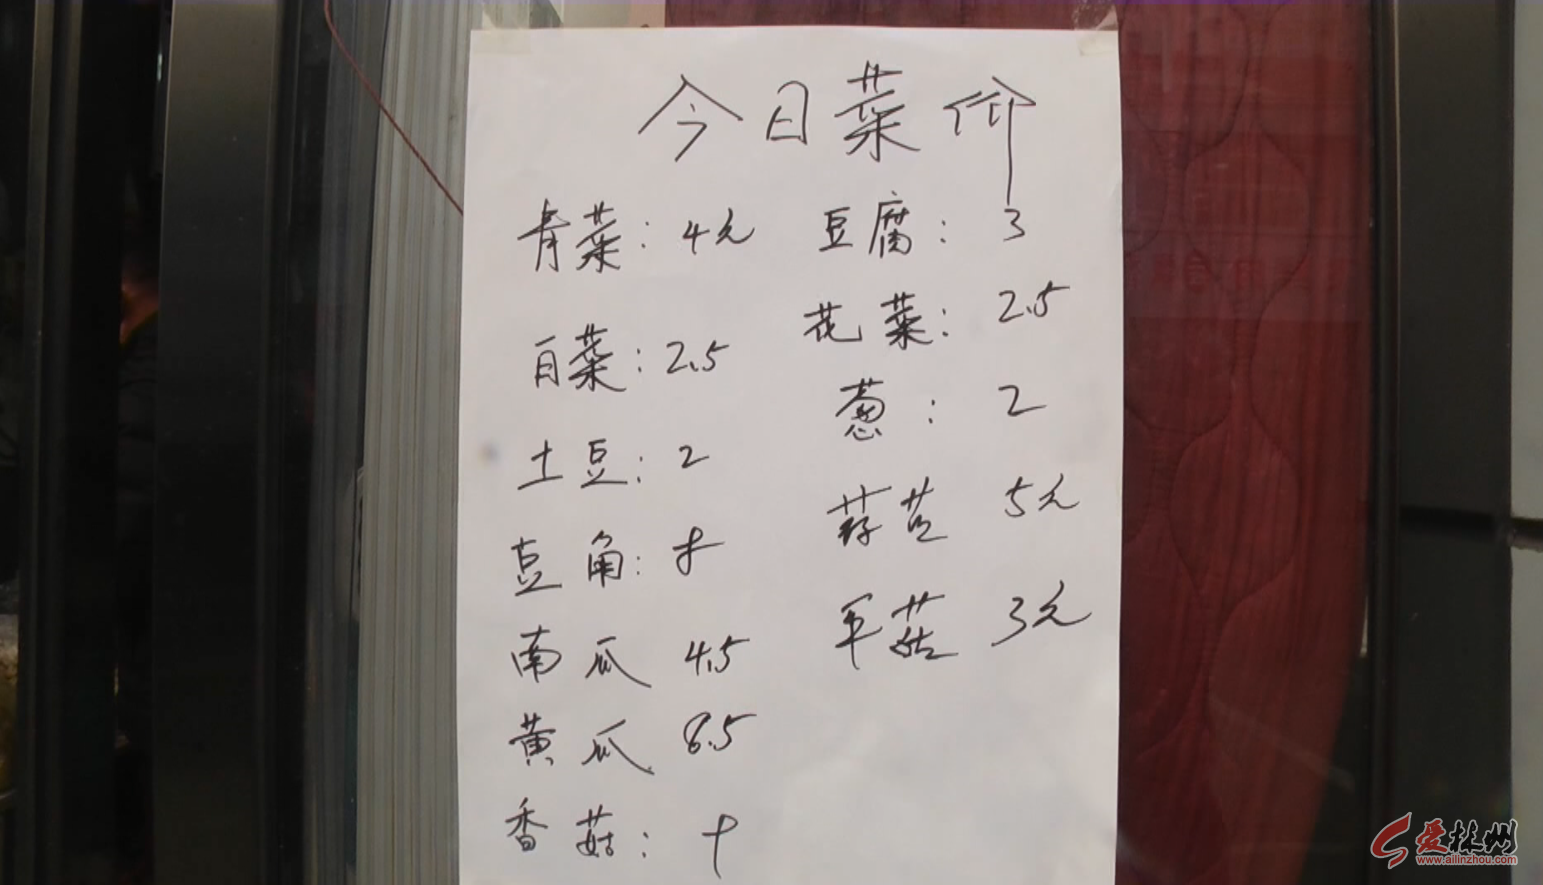 今日菜价
青菜：4元
白菜：2.5
土豆：2
豆角：8
南瓜 4.5
黄瓜 8.5
香菇：
豆腐：3
花菜：2.5
葱：2
5元
平菇 3元
爱林州
www.ailinzhou.com